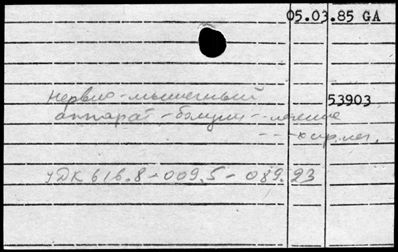 05.03.85 GA
нервно-мышечный
53903
аппарат - - лечение
- - - хирург.
УДК 616.8-009.5-089.23